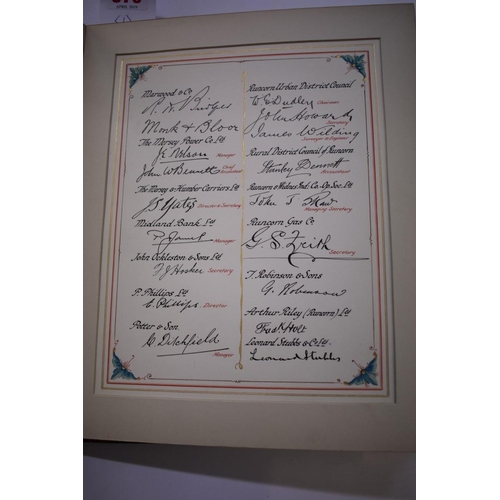 Marwood & Co
Monk & Bloor
The Mersey Power Co. Ltd
J.E. Nelson
Manager
John W Bennett
Chief Accountant
The Mersey & Humber Carriers Ltd
J.S. Yates
Director & Secretary
Midland Bank Ltd
Manager
John Ockleston & Sons Ltd
F J Hooker
Secretary
P. Phillips Ltd
C. Phillips
Director
Potter & Son
C. Ditchfield
Manager
Runcorn Urban District Council
W. E. Dudley
Chairman
John Howard
Secretary
James Wilding
Surveyor & Engineer
Rural District Council of Runcorn
Stanley Dennett
Accountant
Runcorn & Widnes Ind: Co-Op Soc. Ltd
John T Shaw
Managing Secretary
Runcorn Gas Co
G. S. Frith
Secretary
T. Robinson & Sons
G. Robinson
Arthur Riley (Runcorn) Ltd
Fred Holt
Leonard Stubbs & Co Ltd
Leonard Stubbs